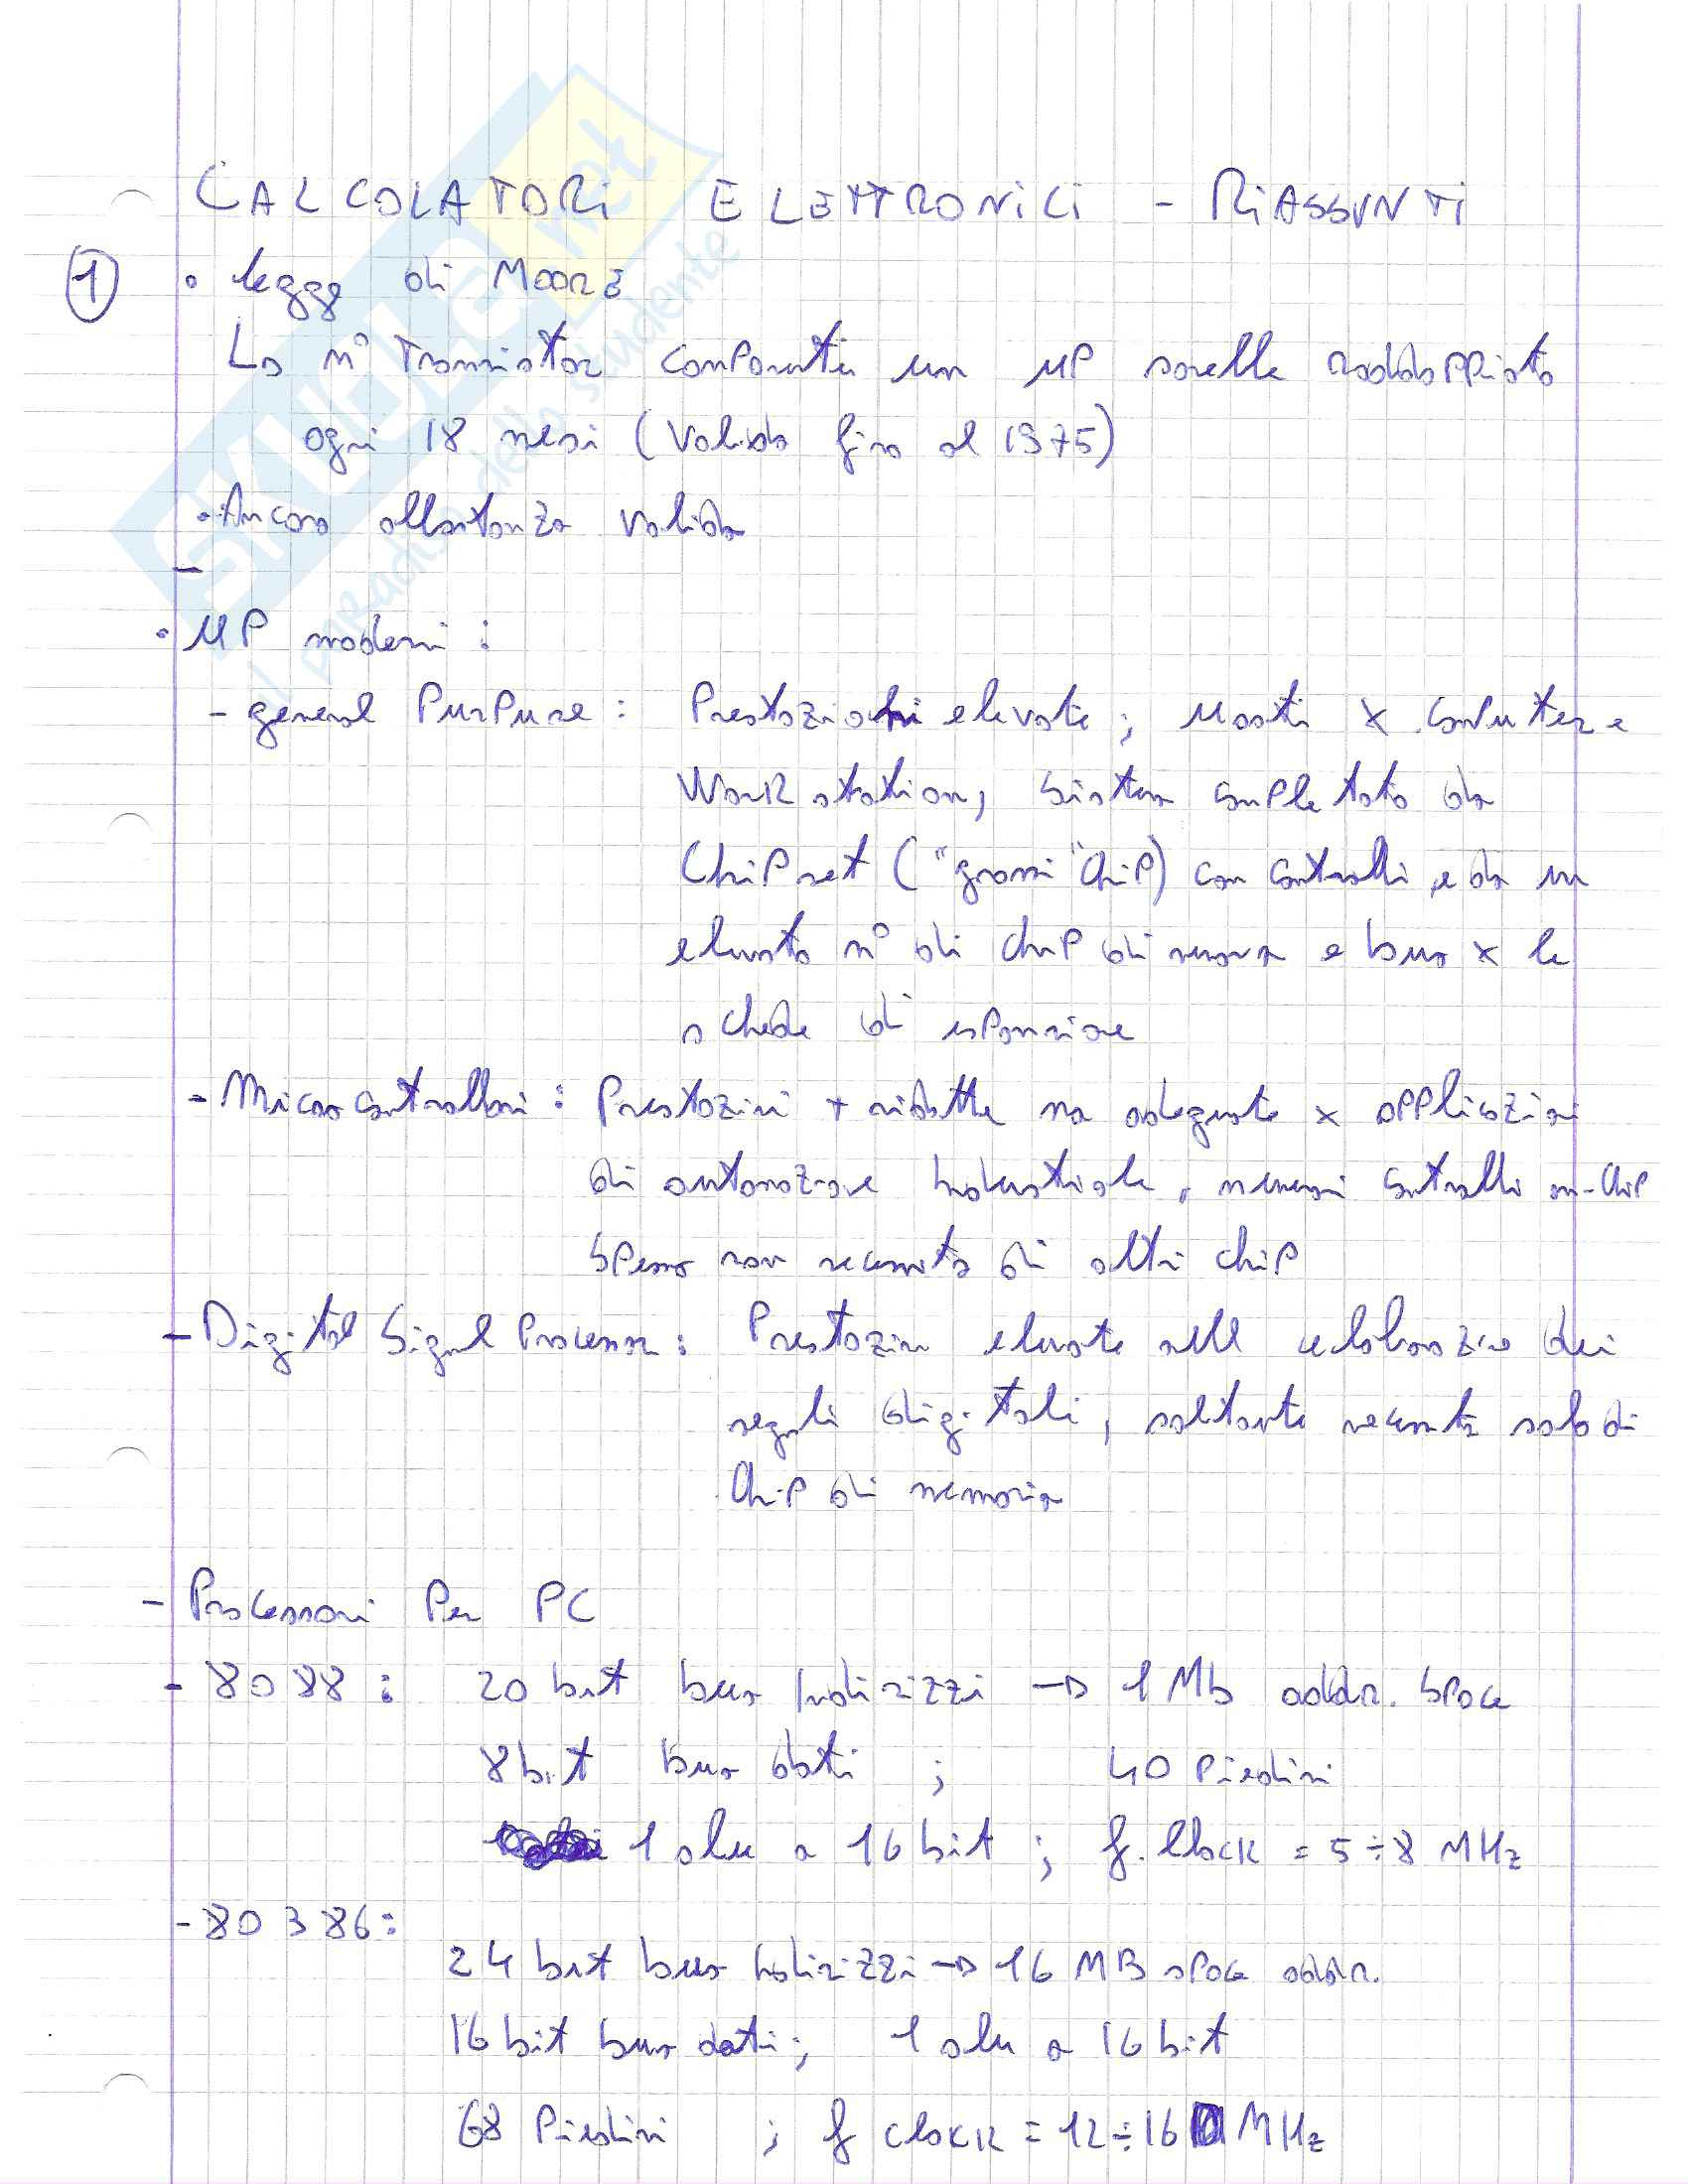 CALCOLATORI ELETTRONICI - RIASSUNTI
1 • legge di Moore
Lo n° Transistor componenti un µP sarebbe raddoppiato
ogni 18 mesi (Valida fino al 1975)
• Ancora abbastanza valida
-
• µP moderni :
- general PurPuse : Prestazioni elevate ; usati x computer e
Workstation, sistema completato da
ChiPset ("grossi" ChiP) con controlli, e da un
elevato n° di chiP di memoria e bus x le
schede di esPansione
- Microcontrollori : Prestazioni + ridotte ma adeguate x aPPlicazioni
di automazione Industriale, numerosi controlli on-ChiP
SPesso non necessita di altri chiP
- Digital Signal Processor : Prestazioni elevate nell elaborazione dei
segnali digitali, solitamente necessita solo di
ChiP di memoria
- Processori Per PC
- 8088 : 20 bit bus Indirizzi → 1 Mb addr. SPace
8 bit bus dati ; 40 Piedini
1 alu a 16 bit ; f. Clock = 5÷8 MHz
- 80386 :
24 bit bus Indirizzi → 16 MB sPace addr.
16 bit bus dati ; 1 alu a 16 bit
68 Piedini ; f clock = 12÷16 MHz
SKUOLA.net
il paradiso dello studente